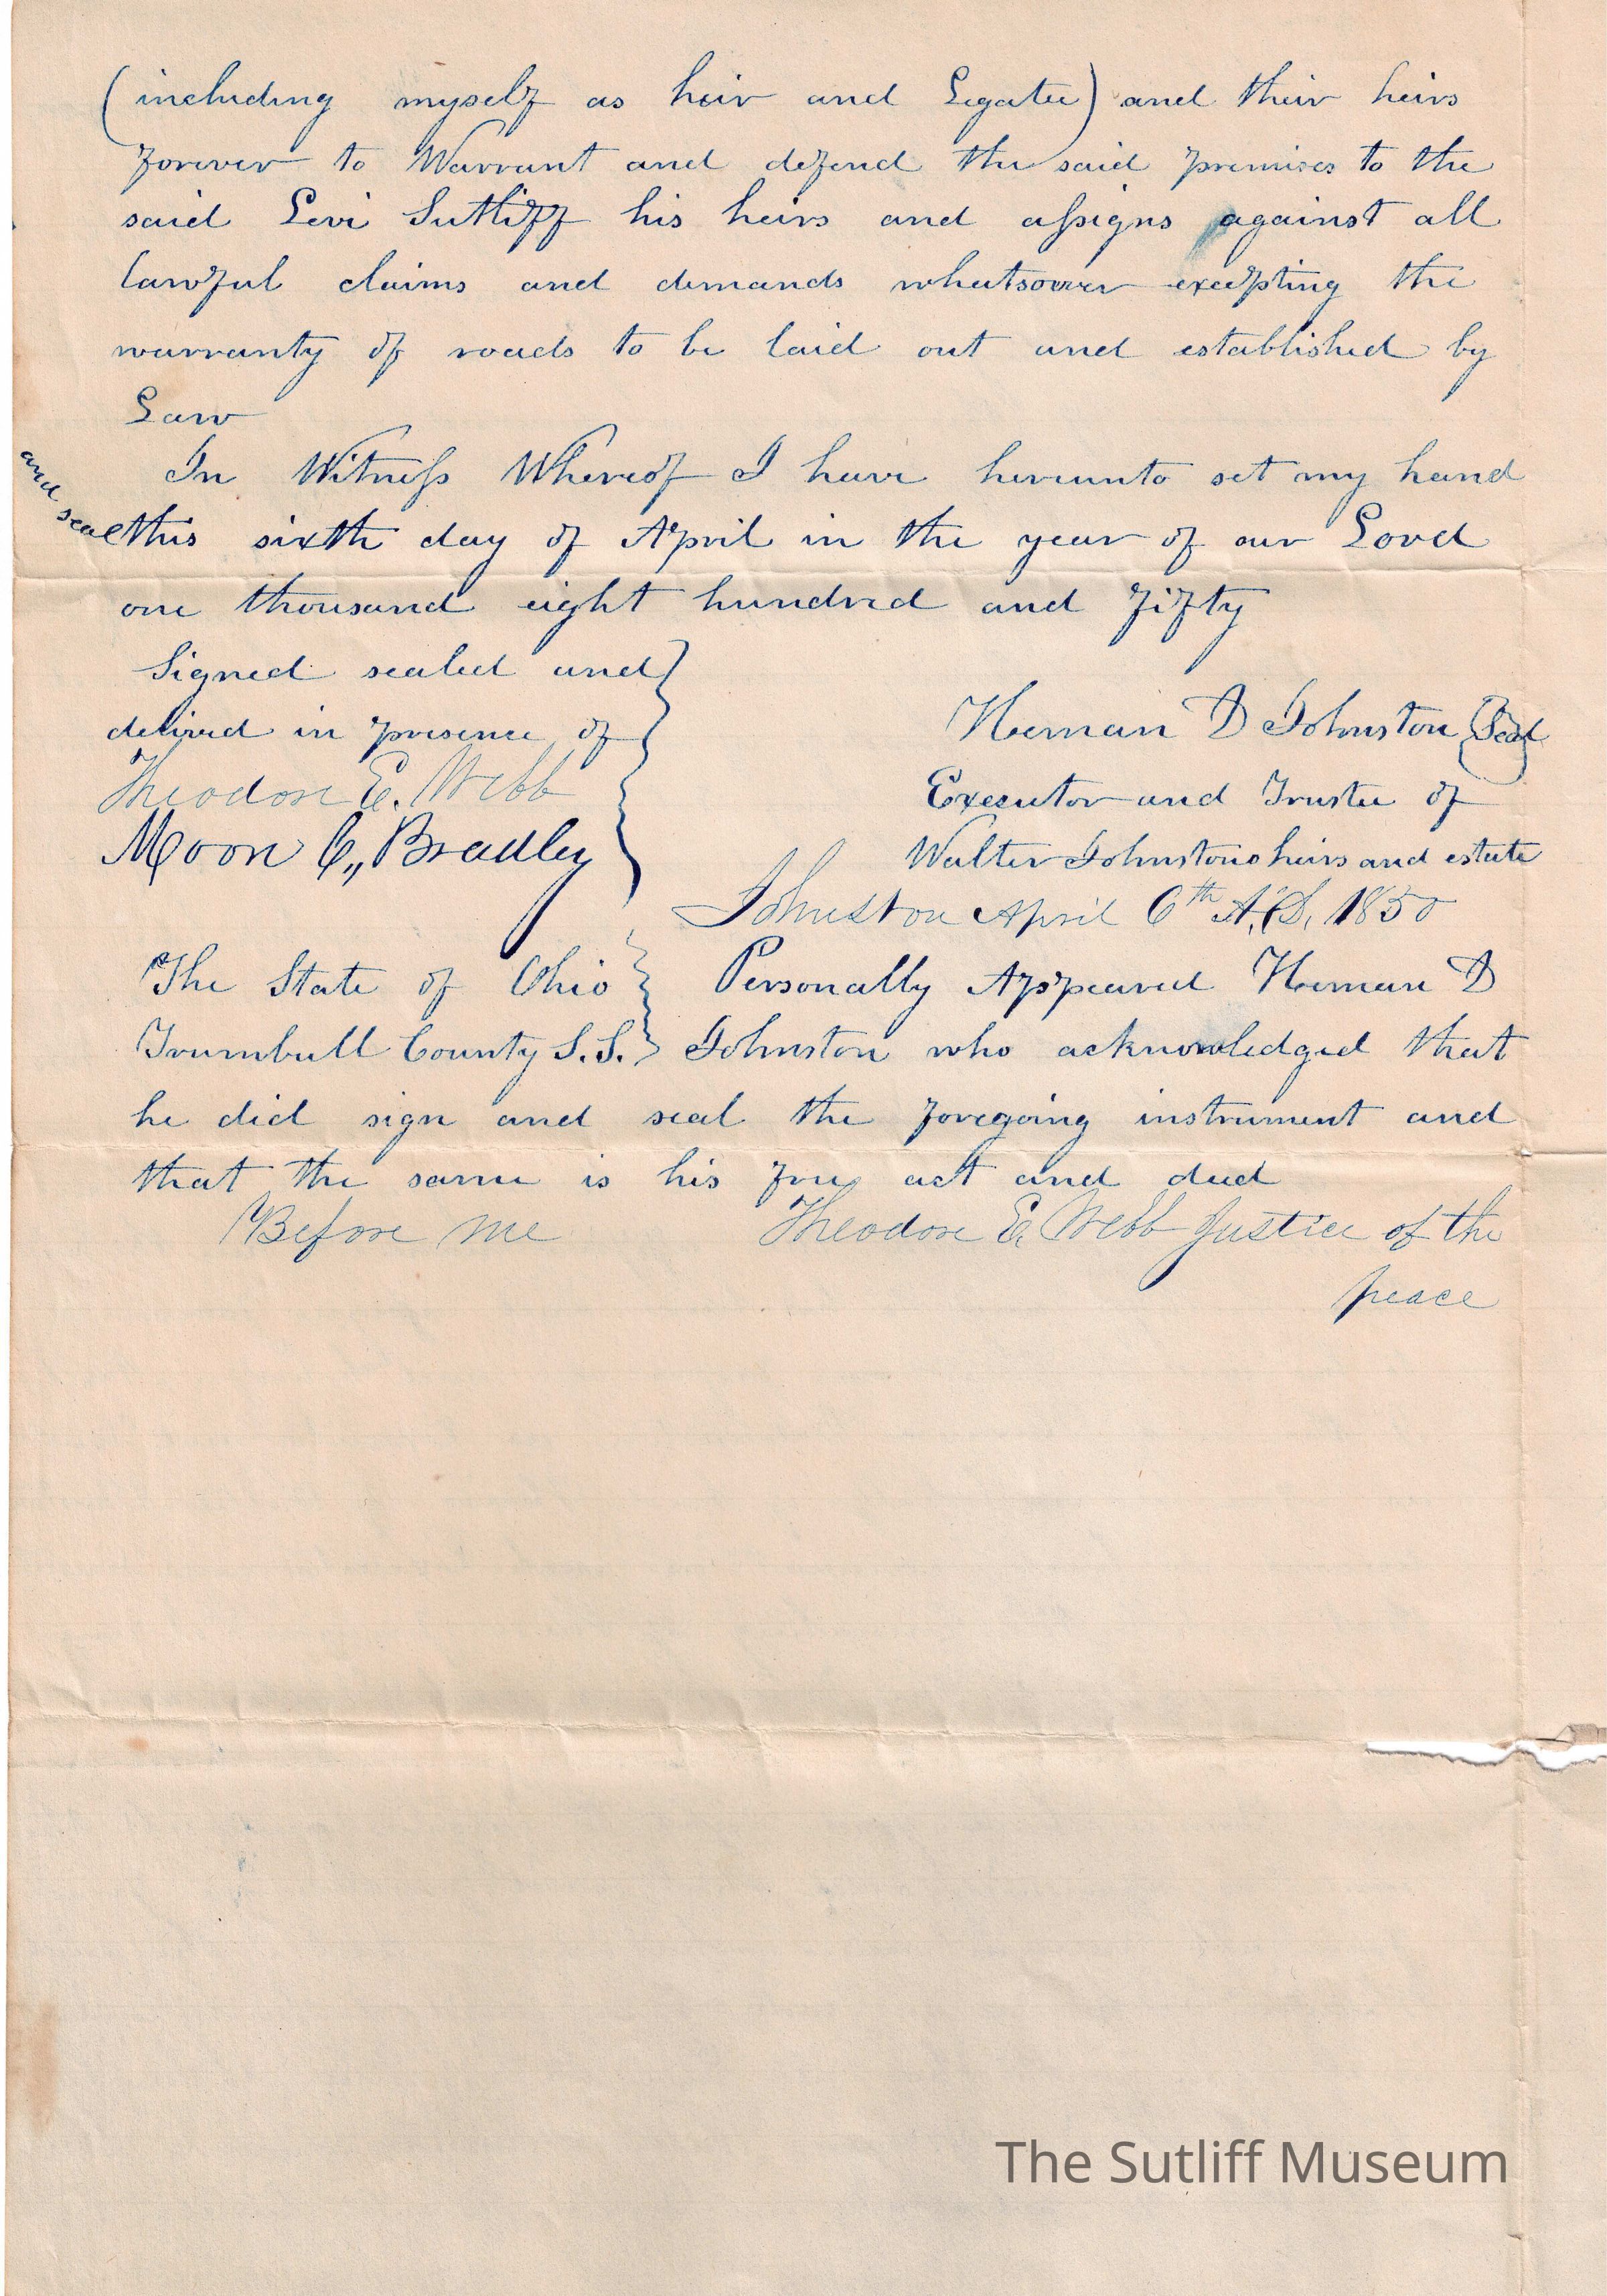 (including myself as heir and Legatee) and their heirs
forever to Warrant and defend the said premises to the
said Levi Sutliff his heirs and assigns against all
lawful claims and demands whatsoever excepting the
warranty of roads to be laid out and established by
Law
In Witness Whereof I have hereunto set my hand
and seal
this sixth day of April in the year of our Lord
one thousand eight hundred and fifty
Signed sealed and
delired in presence of
Theodore E. Webb
Moon C,, Bradley
Herman D Johnston Seal
Executor and Trustee of
Walter Johnstons heirs and estate
Johnston April 6th A.D. 1850
The State of Ohio
Trumbull County S.S.
Personally Appeared Herman D
Johnston who acknowledged that
he did sign and seal the foregoing instrument and
that the same is his free act and deed
Before me Theodore E. Webb Justice of the
peace
The Sutliff Museum